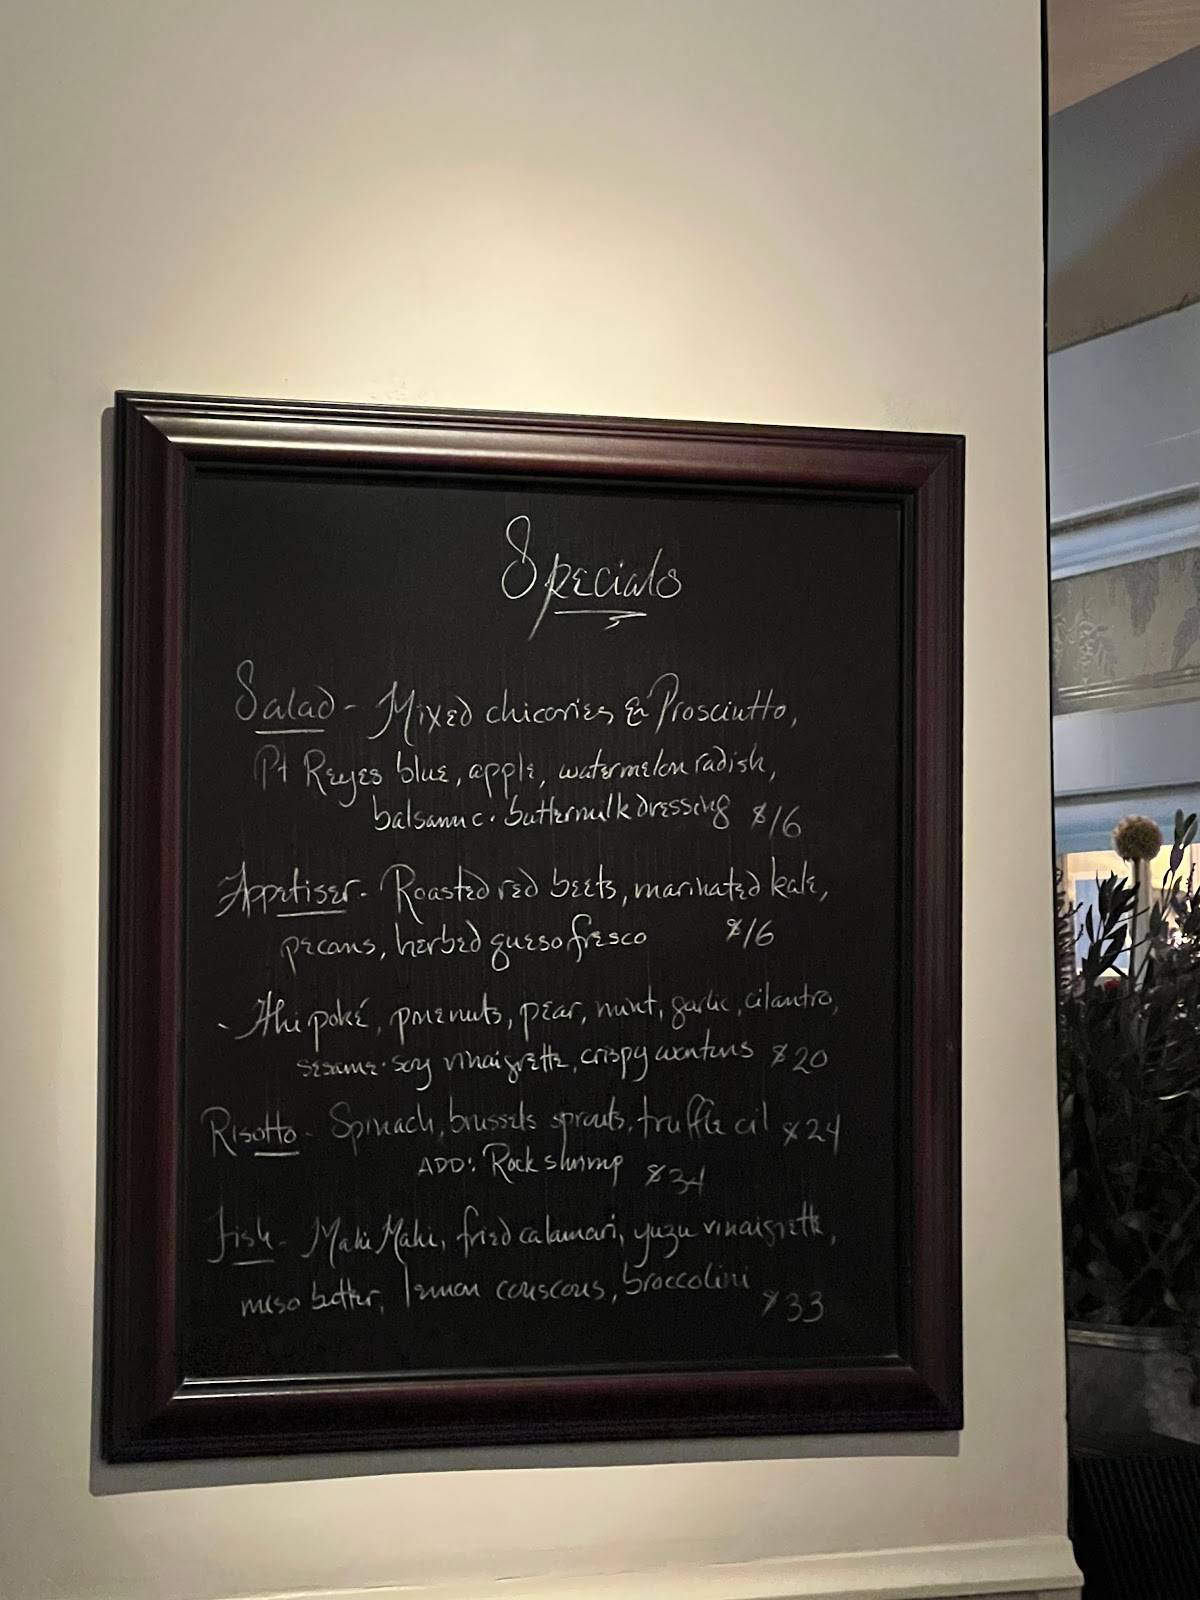 Specials
Salad - Mixed chicories & Prosciutto,
Pt Reyes blue, apple, watermelon radish,
balsamic · buttermilk dressing $16
Appetiser - Roasted red beets, marinated kale,
pecans, herbed queso fresco $16
- Ahi poké, pinenuts, pear, mint, garlic, cilantro,
sesame · soy vinaigrette, crispy wontons $20
Risotto - Spinach, brussels sprouts, truffle oil $24
ADD: Rock shrimp $34
Fish - Mahi Mahi, fried calamari, yuzu vinaigrette,
miso butter, lemon couscous, broccolini $33